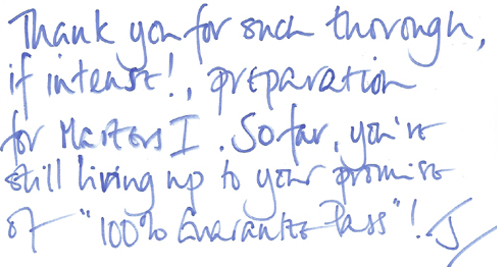 Thank you for such thorough,
if intense!, preparation
for Masters I. So far, you're
still living up to your promise
of "100% Guarantee Pass"! J